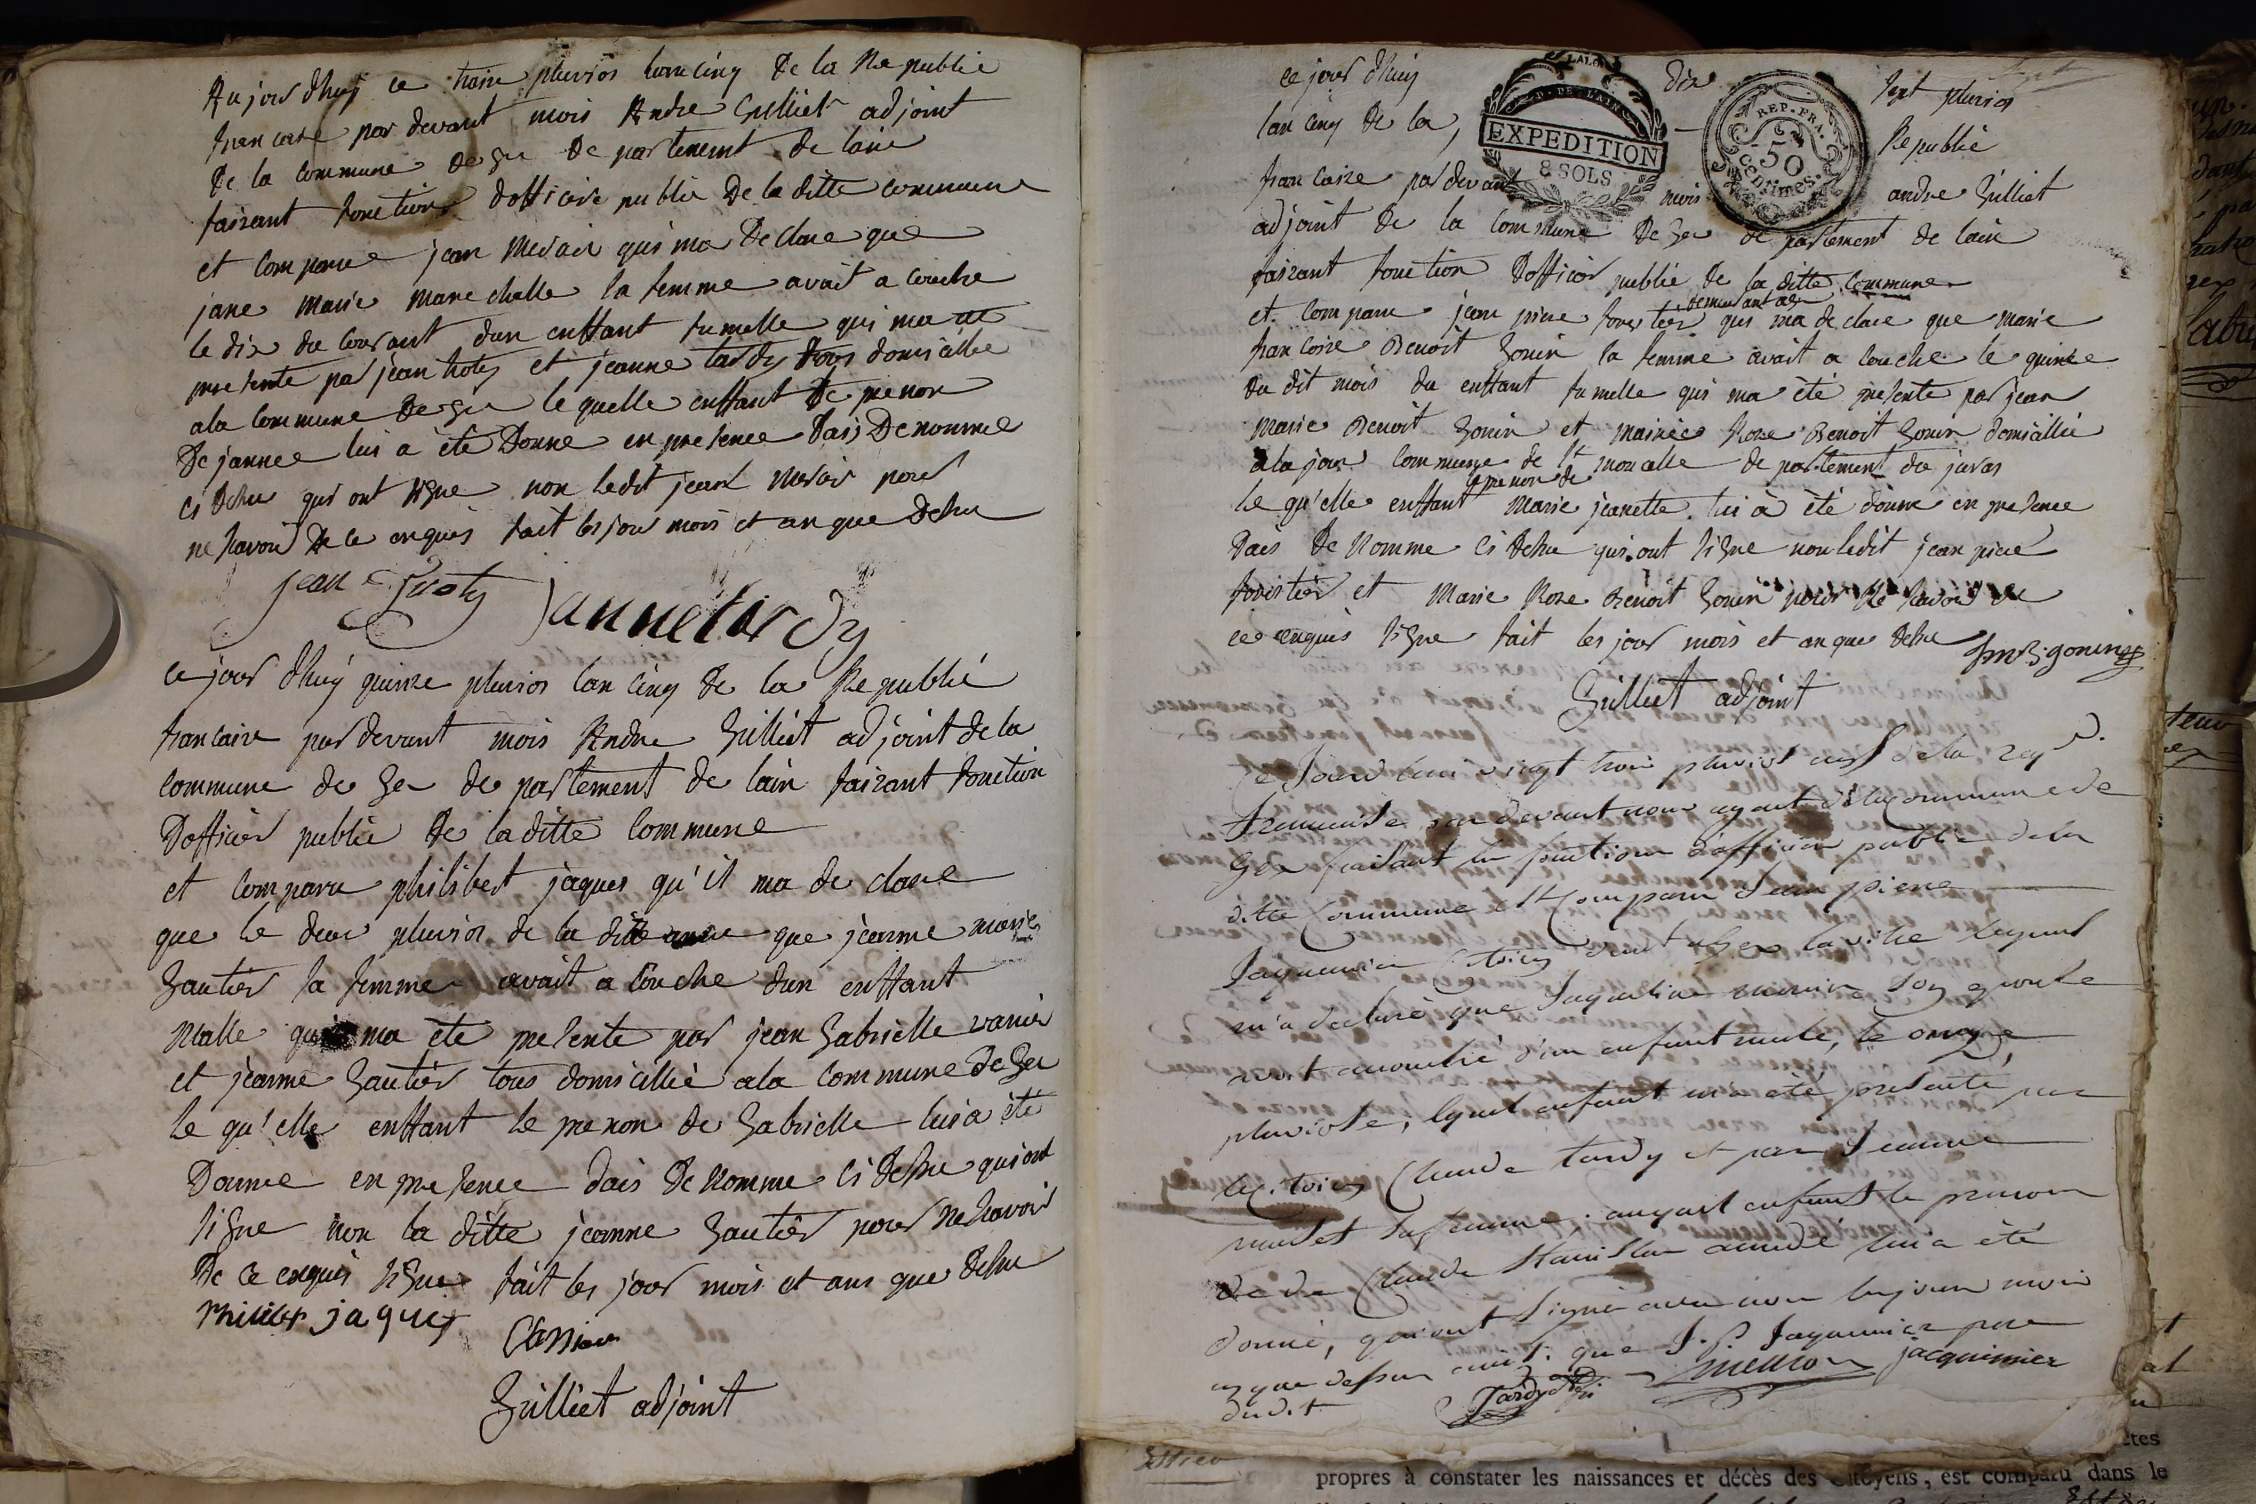 Aujour dhuj ce traise pluvios lan cinq De la Republie
francaise par devant mois Andre Gilliet adjoint
De la commune de gex De partement de lain
faisant fonction dofficier publie De la ditte commune
et comparue jean Mevair qui ma De clare que
jane Marie Mare challe sa femme avait a couche
le dix du courant dun enffant fumelle qui ma ete
presente par jean troty et jeanne tardy tous domicillie
a la commune De gex le quelle enffant De prenon
De jannee lui a été Donne en presence Dais Denomme
ci Desu qui ont signe non ledit jean Mevair pour
ne savoir De ce enquis fait les jour mois et an que desu
jean troty jannetardy
ce jour dhuÿ quinze pluvios lan cinq De la Republié
francaise par devant mois Andre Gilliet adjoint de la
commune de gex de partement de lain faisant fonction
Dofficier publie De laditte commune
et comparu philibert jaques qu'il ma de clare
que le deux pluvios de la ditte que jeanne marie
Gautier sa femme avait a couche dun enffant
Malle qui ma éte presente par jean Gabrielle vanier
et jeanne Gautier tous domicillié a la commune De gex
le qu'elle enffant le prenon de Gabrielle lui a été
Donnee en presence dais De nomme ci Desu qui ont
signe non la ditte jeanne Gautier pour ne savoir
De ce enquis signe fait les jour mois et ans que desu
jaques
Gilliet adjoint
ce jour dhuij dix sept pluvios
LALO
D. DE L'AIN
EXPEDITION
8 SOLS
REP. FRA.
50
Centimes.
lan cinq De la Republié
francaise par devant mois andre Gilliet
adjoint De la commune De gex de partement de lain
faisant fonction Dofficier publie De la ditte commune
demeurant a gex
et comparu jean piere forestier qui ma de clare que marie
francoise Benoit Gonin sa femme avait a couche le quinze
du dit mois du enffant fumelle qui ma été presente par jean
Marie Benoit Gonin et mairie Rose Benoit Gonin domicillié
a la commune de St de partement du juras
le prenon de
le qu'elle enffant Marie jeanette lui à été donne en presence
Dais De Nomme ci Desu qui ont signe non ledit jean piere
forestier et Marie Rose Benoit Gonin pour Ne savoir De
ce enquis signe fait les jour mois et an que desu jmB. gonin
Gilliet adjoint
ce Jourd'hui vingt trois pluviot an 5 de la rep.
francaise par devant nous agent de la commune de
Gex faisant la fonction d'officier public de la
ditte Commune est comparu Jean piere
Jaquemier Citoien dud.t Gex la ville lequel
m'a declaré que Jaqueline son epouse
avoit acouché d'un enfant male, le onze
pluviose, lequel enfant m'a été présenté, par
le Citoien Claude tardy et par Jeanne
sa femme. auquel enfant le prenom
de Claude Stanislas lui a été
donné, qui ont signé avec nous les jour mois
an que dessus que J. P. Jaquemier pere
dudit Tardy jacquimier
propres à constater les naissances et décès des Citoyens, est comparu dans le